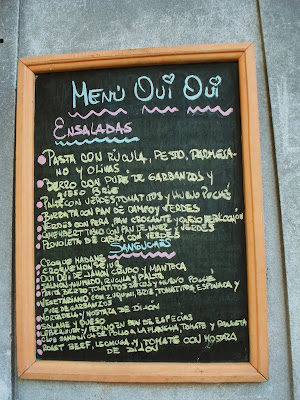 MENÚ OUI OUI
ENSALADAS
PASTA CON RÚCULA, PESTO, PARMESA-
NO Y OLIVAS.
BERRO CON PURÉ DE GARBANZOS Y
QUESO BRIE
VERDES, TOMATITOS Y HUEVO POCHÉ
BURRATA CON PAN DE CAMPO Y VERDES
VERDES CON PERA, PAN CROCANTE Y QUESO
CAMEMBERT TIBIO CON PAN DE NUEZ Y VERDES
DE CABRA CON VERDES
SANGUCHES
CROQUE MADAME
CROQUE MONSIEUR
OUI OUI DE JAMON CRUDO Y MANTECA
SALMON AHUMADO, RUCULA Y PALTA
PALTA BERRO TOMATITOS SECOS Y HUEVO POCHÉ
VEGETARIANO CON ZUQUINI, BRIE TOMATITOS ESPINACA Y
PURE DE GARBANZOS
MORTADELA Y MOSTAZA DE DIJON
SALAME Y QUESO
Y PEPINO EN PAN DE ESPECIAS
CLUB SANDWICH DE POLLO A LA PLANCHA, TOMATE Y PANCETA
ROAST BEEF, LECHUGA, Y TOMATE CON MOSTAZA
DE DIJON